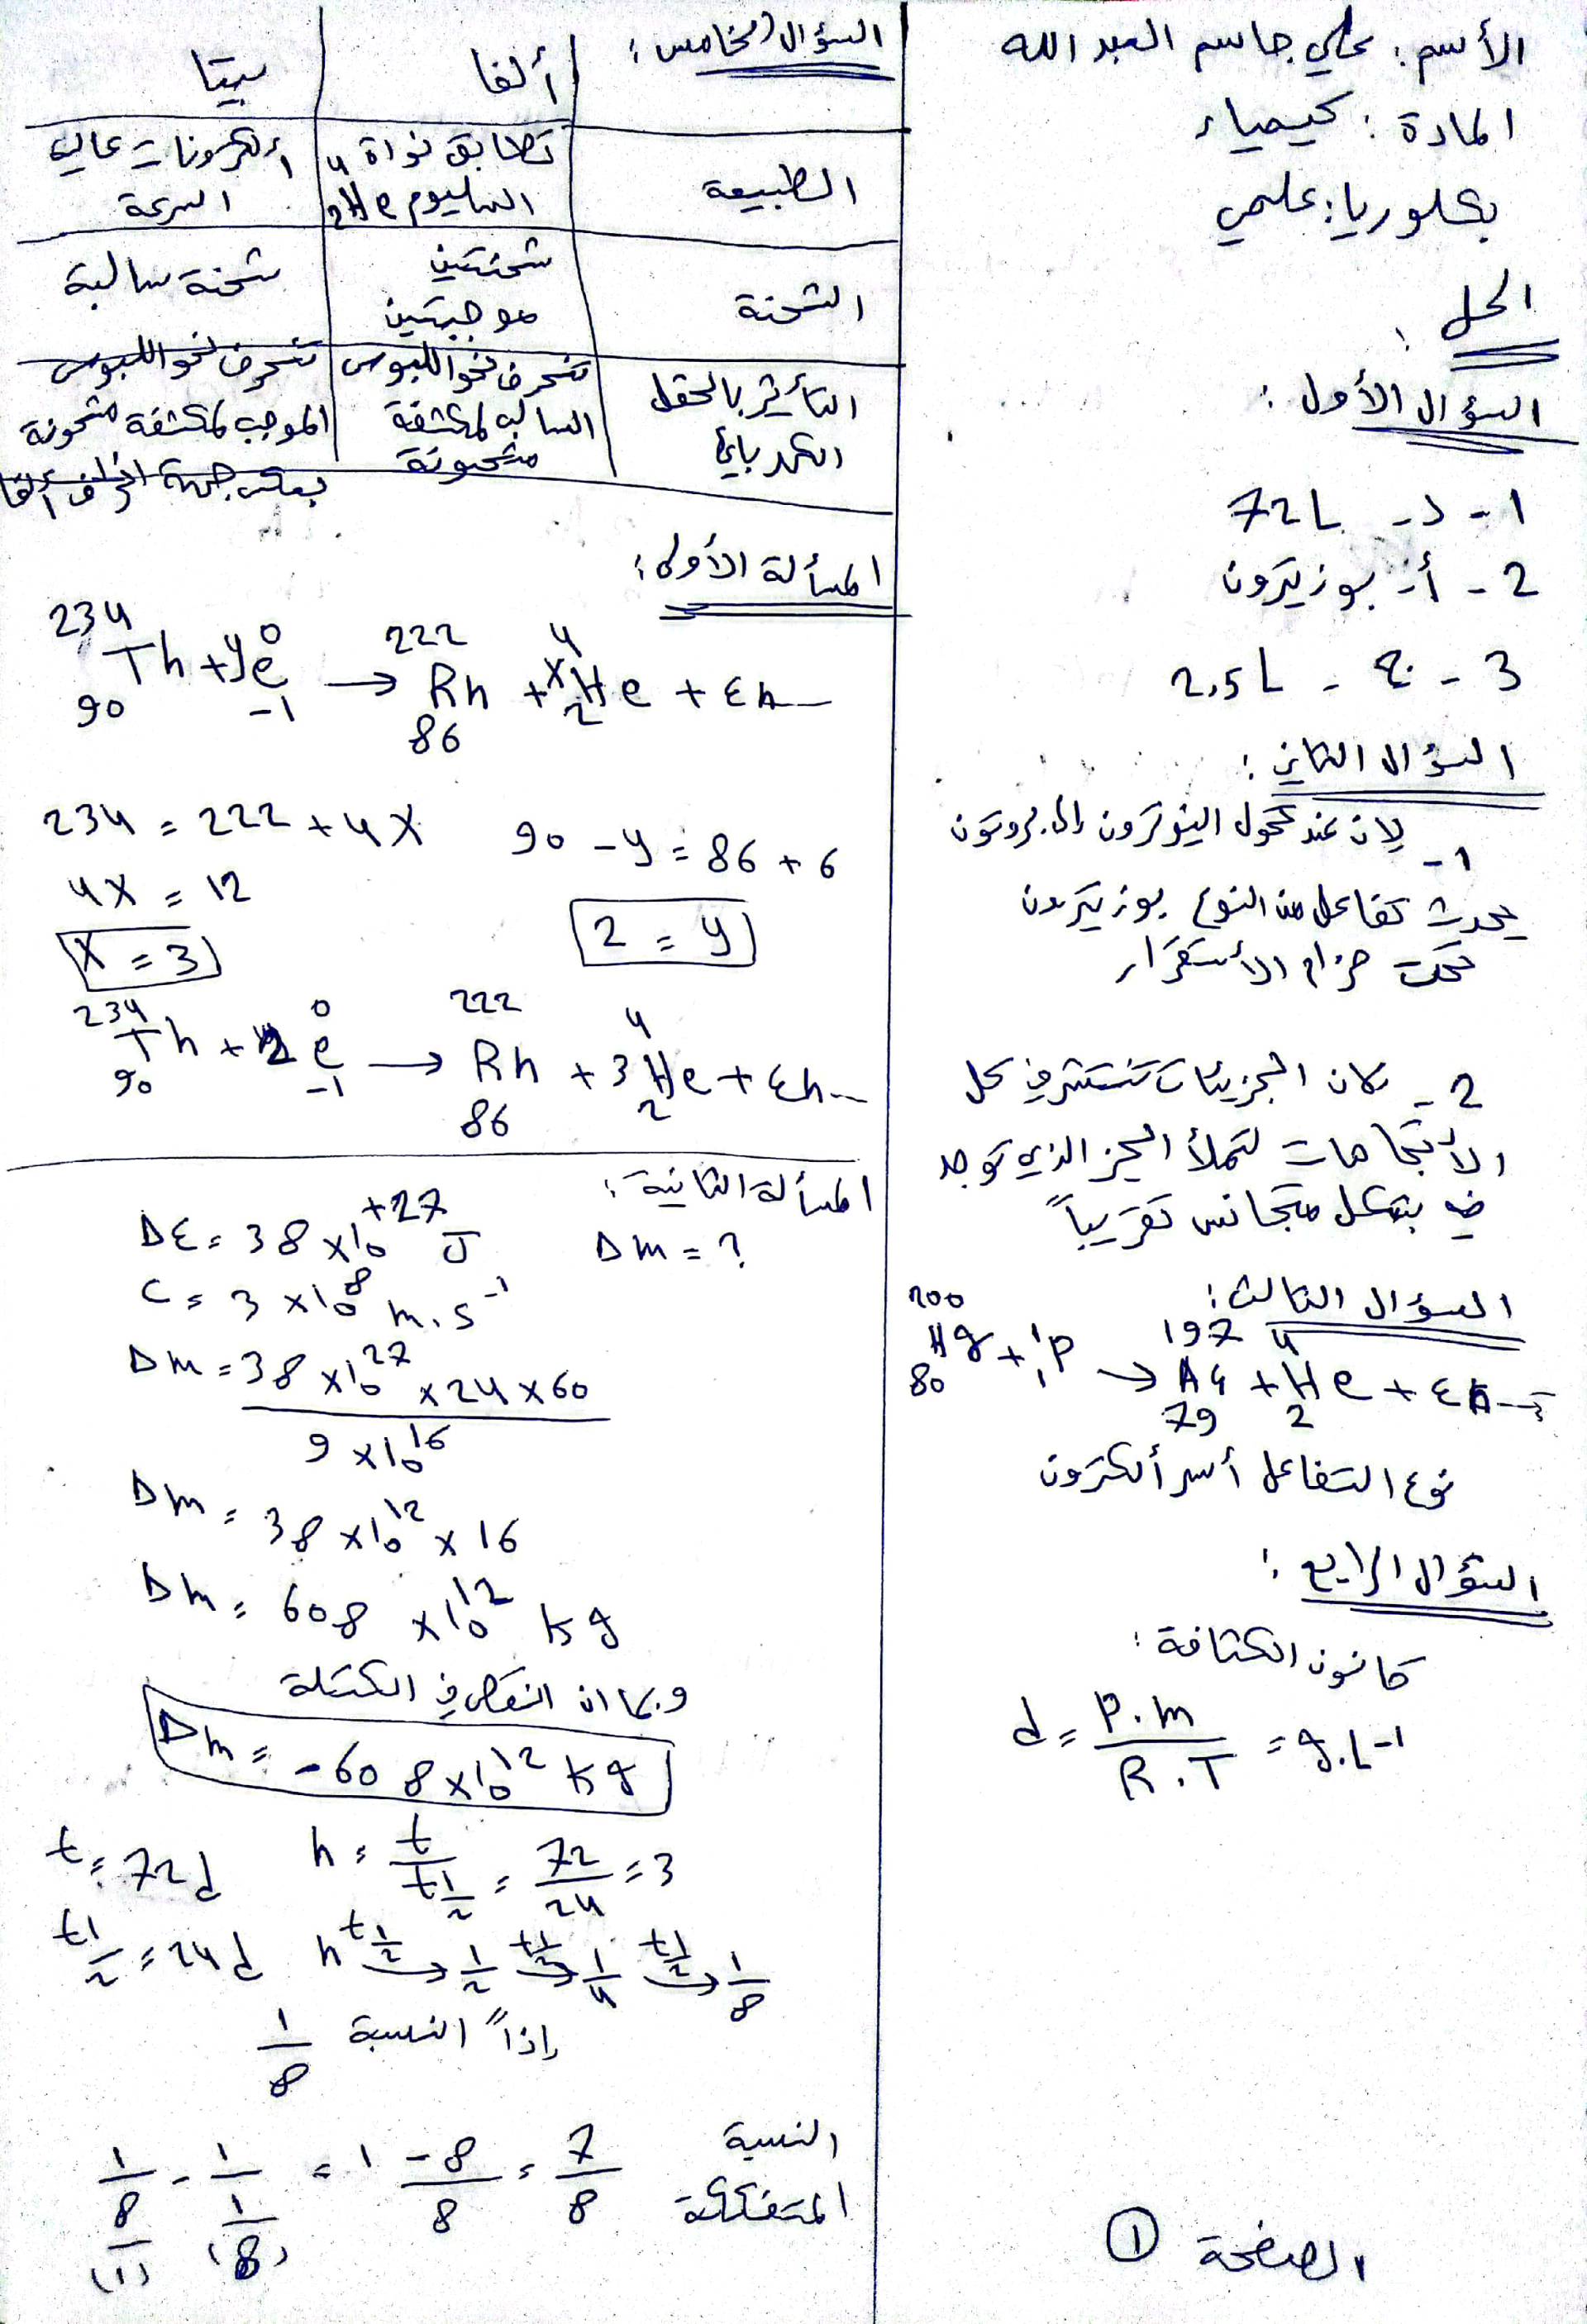 الأسم: علي جاسم العبد الله
المادة: كيمياء
بكلوريا: علمي
الحل:
السؤال الأول:
1 - د - 72L
2 - أ - بوزيترون
3 - ج - 2,5L
السؤال الثاني:
1 - لان عند تحول النيوترون إلى بروتون
يحدث تفاعل من النوع بوزيترون
تحت حزام الأستقرار
2 - لان الجزيئات تنتشر في كل
الأتجاهات لتملأ الحيز الذي توجد
فيه بشكل متجانس تقريباً
السؤال الثالث:
²⁰⁰₈₀Hg + ¹₁P → ¹⁹⁷₇₉Au + ⁴₂He + En
نوع التفاعل أسر ألكترون
السؤال الرابع:
قانون الكثافة:
d = P.m / R.T = g.L⁻¹
الصفحة ①
السؤال الخامس: | ألفا | بيتا
الطبيعة | تطابق نواة الهليوم ⁴₂He | ألكترونات عالية السرعة
الشحنة | شحنتين موجبتين | شحنة سالبة
التأثير بالحقل الكهربائي | تنحرف نحو اللبوس السالب لمكثفة مشحونة | تنحرف نحو اللبوس الموجب لمكثفة مشحونة بعكس جهة انحراف ألفا
المسألة الأولى:
²³⁴₉₀Th + y ⁰₋₁e → ²²²₈₆Rn + x ⁴₂He + En
234 = 222 + 4X   90 - y = 86 + 6
4X = 12
X = 3   2 = y
²³⁴₉₀Th + 2 ⁰₋₁e → ²²²₈₆Rn + 3 ⁴₂He + En
المسألة الثانية:
ΔE = 38 × 10⁺²⁷ J   Δm = ?
C = 3 × 10⁸ m.s⁻¹
Δm = 38 × 10²⁷ × 24 × 60 / 9 × 10¹⁶
Δm = 38 × 10¹² × 16
Δm = 608 × 10¹² kg
وبما ان النقص في الكتلة
Δm = -608 × 10¹² kg
t = 72d   n = t / t½ = 72/24 = 3
t½ = 24d   n t½→ 1/2 t½→ 1/4 t½→ 1/8
إذاً النسبة 1/8
النسبة المتفككة
1/8 (1) - 1/1 (8) = 1 - 8 / 8 = 7/8